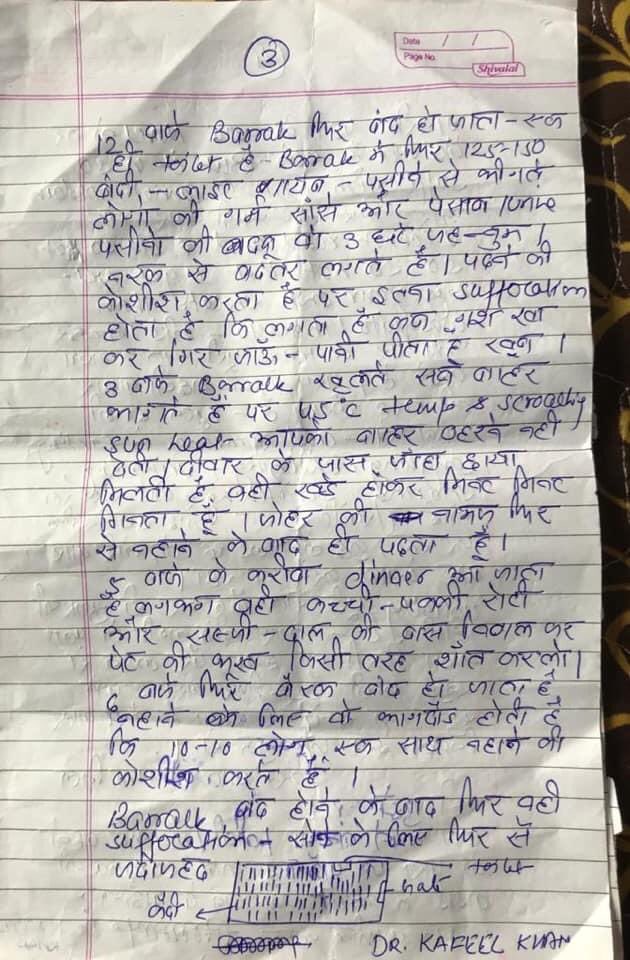 3
Date / /
Page No.
Shivalal
12 बजे Barrak फिर बंद हो जाता - एक
ही है - Barrak में फिर 125-150
बंदी - लाइट गायब - पसीने से भीगते
लोगों की गर्म सांसे और पेसाब /urine
पसीने की बदबू वो 3 घंटे जहन्नुम /
नरक से बदतर लगते हैं। पढ़ने की
कोशीश करता हूँ पर इतना suffocation
होता है कि लगता है कब गश खा
कर गिर जाऊँ - पानी पीता हूँ खूब।
3 बजे Barrak खुलते सब बाहर
भागते हैं पर 45°c temp & scroaching
sun heat आपको बाहर ठहरने नही
देती। दीवार के पास जहा छाया
मिलती है, वही खड़े होकर मिनट मिनट
गिनता हूँ। जोहर की नामज फिर
से नहाने के बाद ही पढ़ता हूँ।
5 बजे के करीब dinner आ जाता
है लगभग वही कच्ची-पक्की रोटी
और सब्जी-दाल की बास निकाल कर
पेट की भूख किसी तरह शांत कर लो।
6 बजे फिर बैरक बंद हो जाता है
नहाने के लिए वो भागदौड़ होती है
कि 10-10 लोग एक साथ नहाने की
कोशीश करते हैं।
Barrak बंद होने के बाद फिर वही
suffocation - सोने के लिए फिर से
जद्दोजहद
कैदी
DR. KAFEEL KHAN